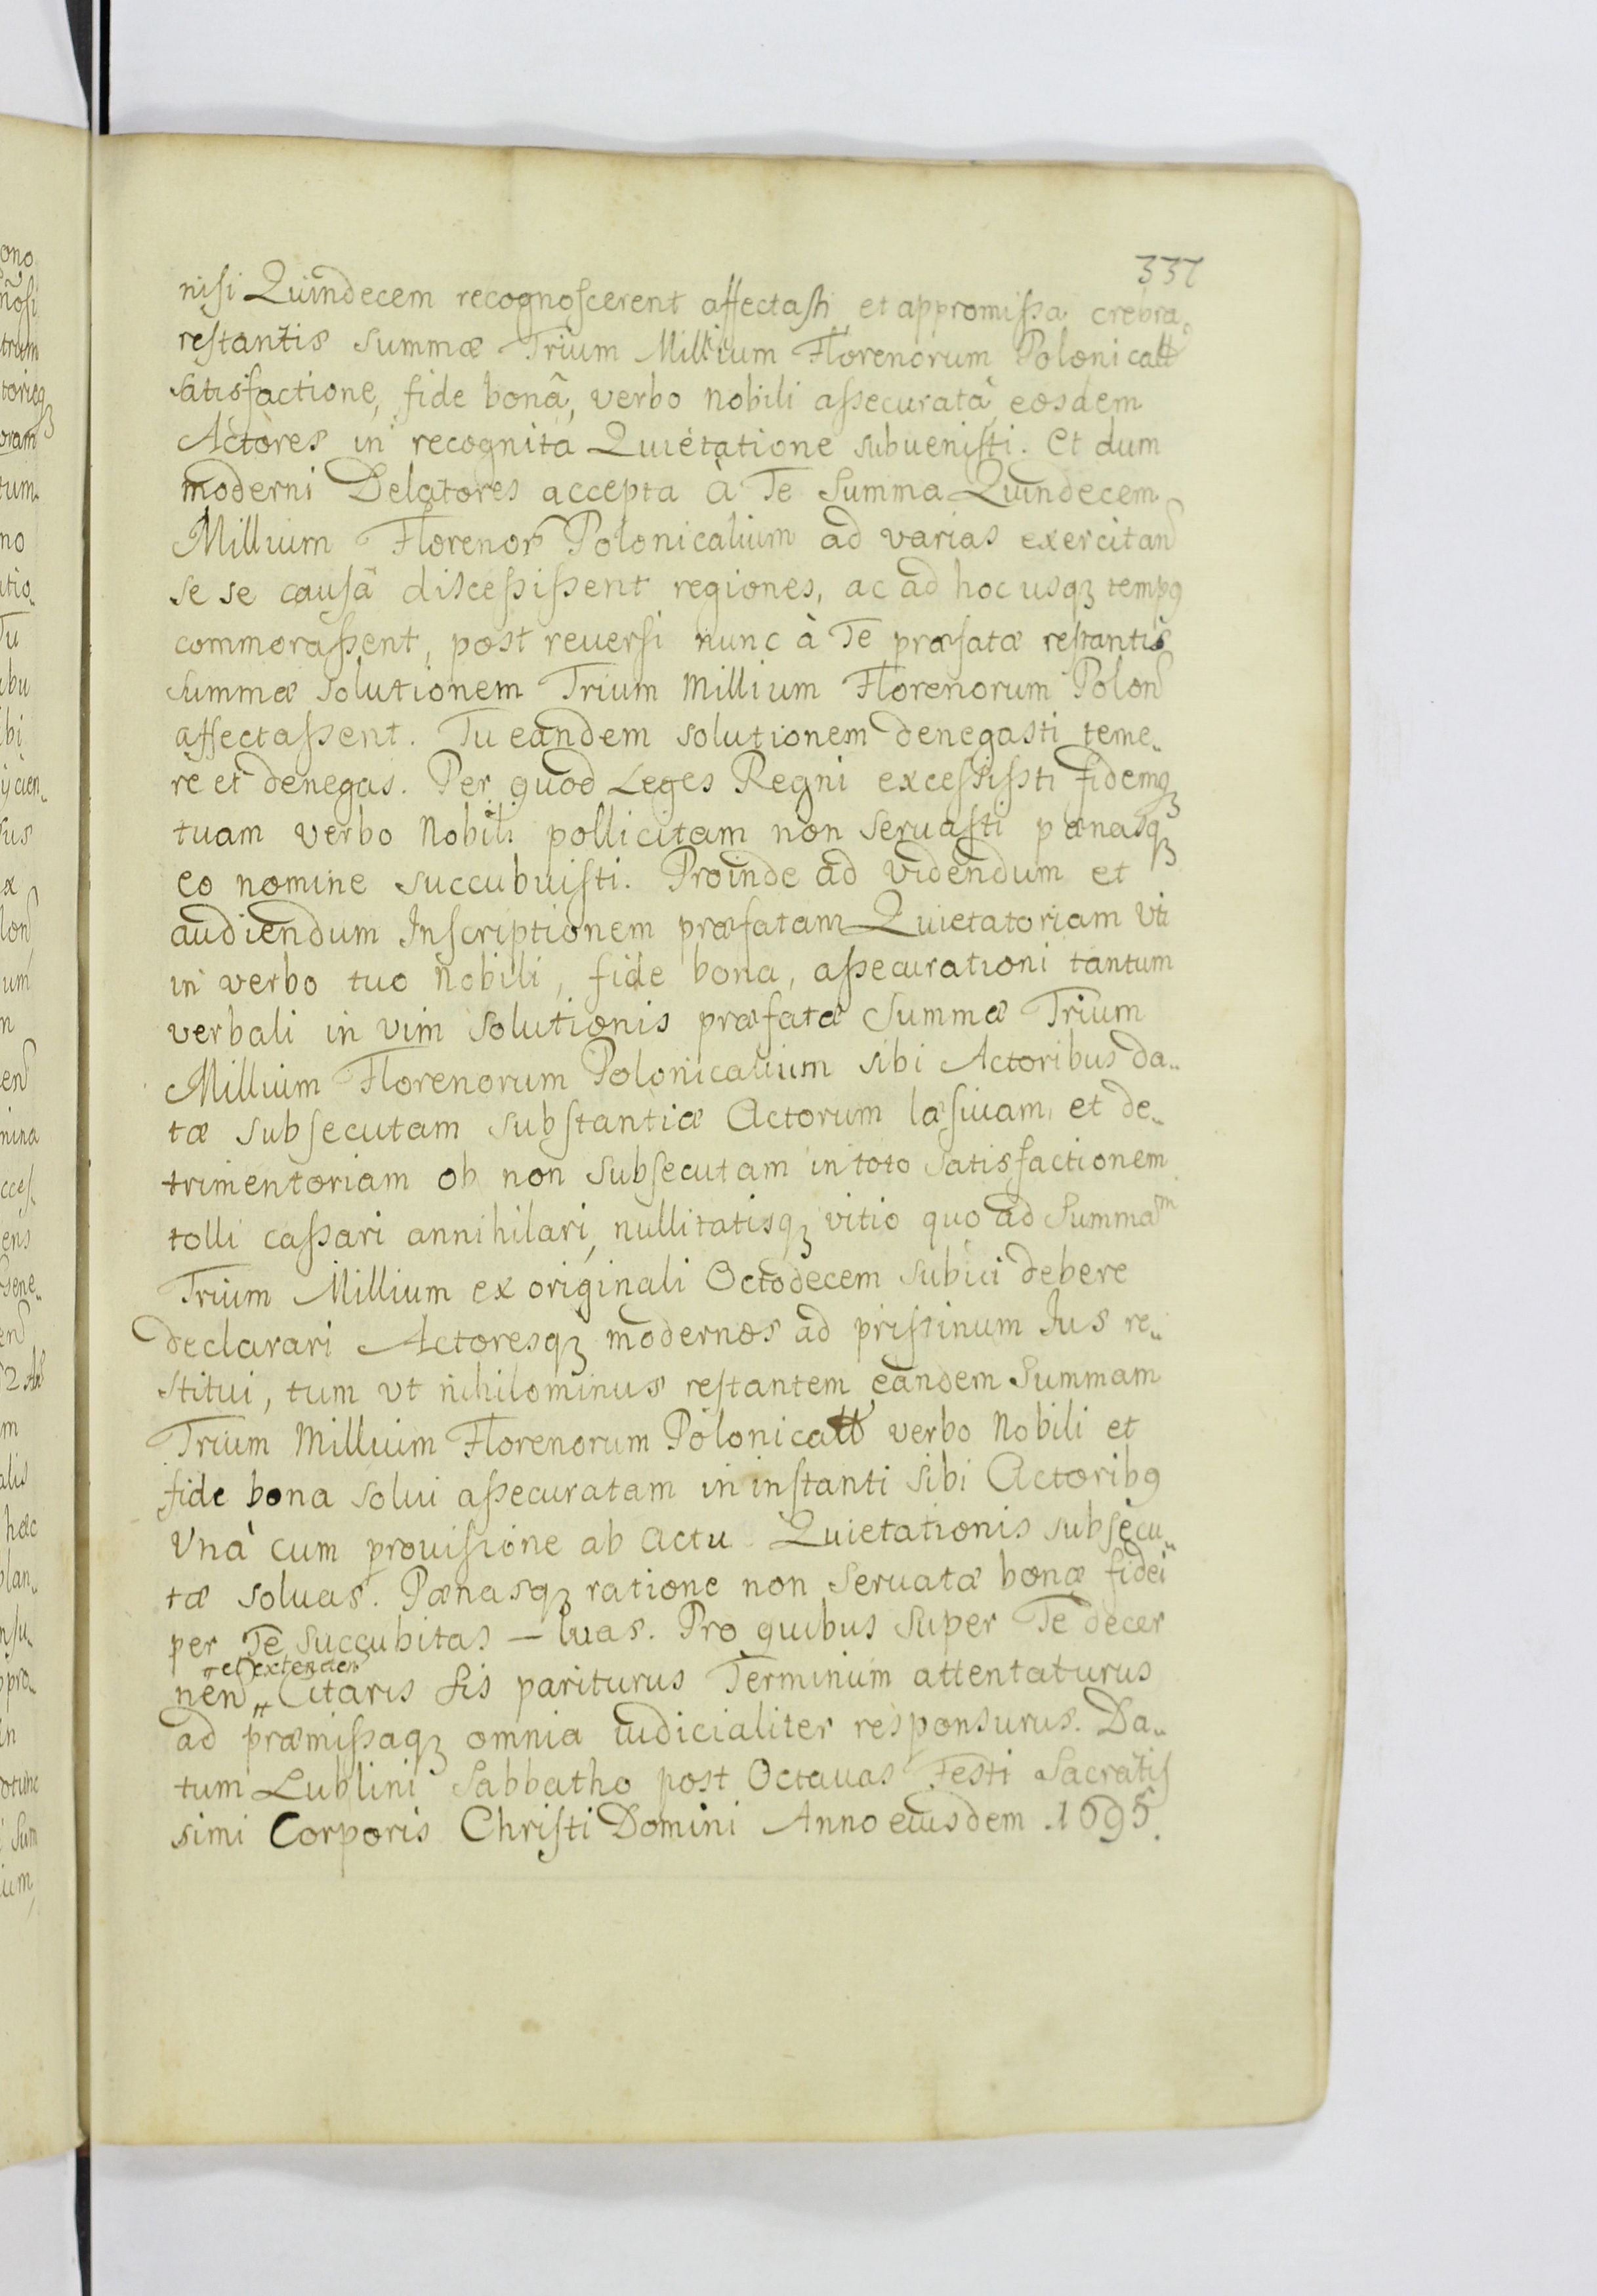 337
nisi Quindecem recognoscerent affectasti et appromissa crebra
restantis summæ Trium Millium Florenorum Polonicall
satisfactione, fide bonâ, verbo nobili assecuratâ eosdem
Actores in recognita Quietatione subuenisti. Et dum
moderni Delatores accepta à Te Summa Quindecem
Millium Florenor Polonicalium ad varias exercitan
se se causâ discessissent regiones, ac ad hoc usqꝫ tempꝯ
commorassent, post reuersi nunc à Te præfatæ restantis
summæ solutionem Trium Millium Florenorum Polon
affectassent. Tu eandem solutionem denegasti teme„
rè et denegas. Per quod Leges Regni excessisti fidemqꝫ
tuam verbo Nobili pollicitam non seruasti pænasqꝫ
eo nomine succubuisti. Proinde ad videndum et
audiendum Inscriptionem præfatam Quietatoriam Vti
in verbo tuo Nobili, fide bona, assecurationi tantum
verbali in vim solutionis præfatæ Summæ Trium
Millium Florenorum Polonicalium sibi Actoribus da„
tæ subsecutam substantiæ Actorum læsiuam et de„
trimentoriam ob non subsecutam in toto satisfactionem
tolli cassari annihilari, nullitatisqꝫ vitio quo ad Summaᵐ
Trium Millium ex originali Octodecem subiici debere
declarari Actoresqꝫ modernos ad pristinum Jus re„
stitui, tum vt nihilominus restantem eandem Summam
Trium Millium Florenorum Polonicall verbo Nobili et
fide bona solui assecuratam in instanti sibi Actoribꝯ
Vnà cum prouisione ab Actu Quietationis subsecu„
tæ soluas. Pænasqꝫ ratione non seruatæ bonæ fidei
per Te succubitas — luas. Pro quibus super Te decer
et extenden
nen „ Citaris sis pariturus Terminum attentaturus
ad præmissaqꝫ omnia iudicialiter responsurus. Da„
tum Lublini Sabbatho post Octauas Festi Sacratis
simi Corporis Christi Domini Anno eiusdem 1695.